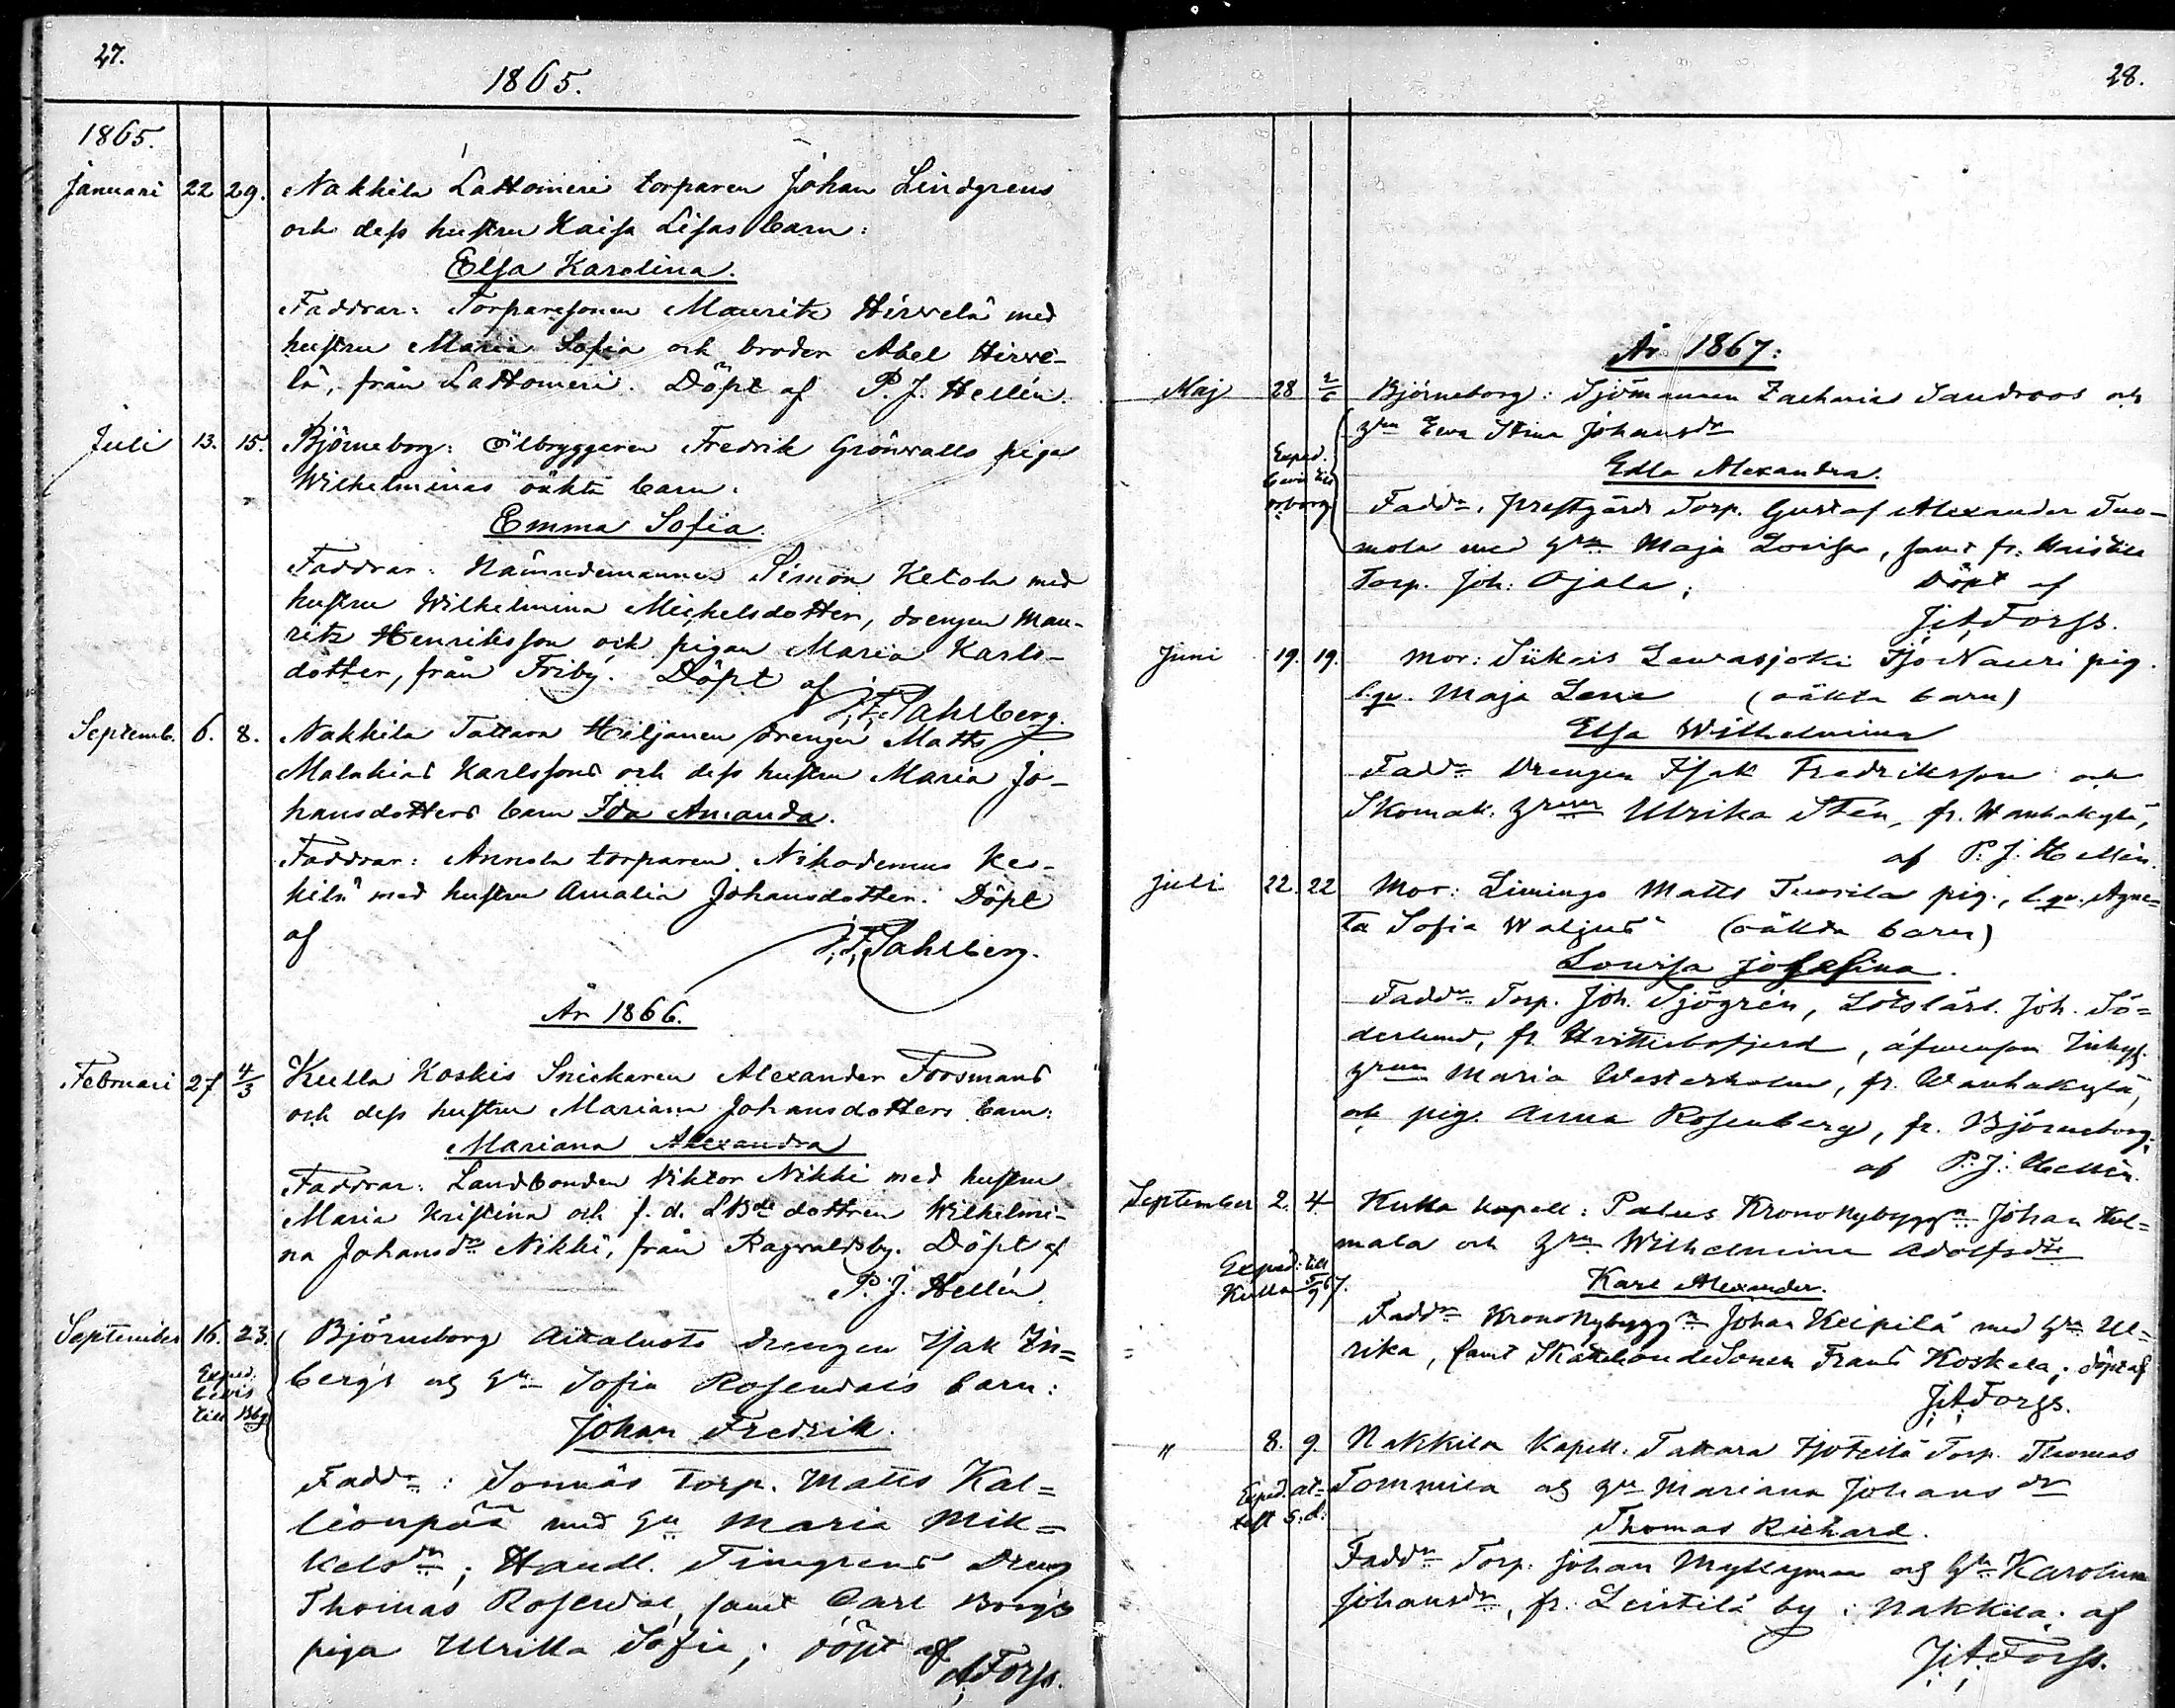 27.
1865.
1865.
Januari 22 29. Nakkila Lattomeri torparen Johan Lindgrens
och dess hustru Kaisa Lisas barn:
Elsa Karolina.
Faddrar: Torparesonen Mauritz Hirvelä med
hustru Maria Sofia och brodren Abel Hirve-
lä, från Lattomeri. Döpt af P. J. Hellén.
Juli 13. 15. Björneborg: Ölbryggeren Fredrik Grönvalls piga
Wilhelminas oäkta barn:
Emma Sofia.
Faddrar: Nämndemannen Simon Ketola med
hustru Wilhelmina Mickelsdotter, drengen Mau-
ritz Henriksson och pigan Maria Karls-
dotter, från Friby. Döpt af
J. F. Sahlberg.
Septemb. 6. 8. Nakkila Tattara Hiljanen drengen Matts
Malakias Karlssons och dess hustru Maria Jo-
hansdotters barn Ida Amanda.
Faddrar: Annola torparen Nikodemus Ke-
kilä med hustru Amalia Johansdotter. Döpt
af J. F. Sahlberg.
År 1866.
Februari 27 4/3 Kulla Koskis Snickaren Alexander Forsmans
och dess hustru Mariana Johansdotters barn:
Mariana Alexandra
Faddrar: Landbonden Viktor Nikki med hustru
Maria Kristina och f. d. LBde dottren Wilhelmi-
na Johansdr Nikki, från Ragvaldsby. Döpt af
P. J. Hellén.
September 16. 23. Björneborg drengen Isak In=
bergs och Hu Sofia Rosendals barn:
Exped.
bevis
till Bbg
Johan Fredrik.
Faddr: Sonnäs Torp. Matts Kal=
lionpää med Hu Maria Mik=
kelsdr; Handl. Timgrens Dreng
Thomas Rosendal, samt Carl Borgs
piga Ulrika Sofia; döpt af
A Forss.
28.
År 1867:
Maj 28 2/6 Björneborg: Sjömannen Zacharias Sandroos och
Hru Ewa Stina Johansdr
Exped.
bevis till
Edla Alexandra.
Faddr, prestgårds Torp. Gustaf Alexander Tuo-
mola med Hru Maja Lovisa, samt fr.
Torp. Joh: Ojala; Döpt af
J. A. Forss.
Juni 19. 19. Mor: Siikais Leväsjoki Nauri pig.
l.qv. Maja Lena (oäkta barn)
Elsa Wilhelmina
Faddr Drengen Isak Fredriksson och
Skomak. Hrun Ulrika Stén, fr. Wanhakylä,
af P. J. Hellén.
Juli 22. 22 Mor: Liminge Matts Tuorila pig., l.qv. Agne=
ta Sofia Waljus (oäkta barn)
Lovisa Josefina.
Faddr Torp. Joh. Sjögrén, Lotslärl. Joh. Sö=
derlund, fr. Hvittisbofjerd, äfvensom Inhys.
Hrun Maria Westerholm, fr. Wanhakylä,
och pig. Anna Rosenberg, fr. Björneborg;
af P. J. Hellén.
September 2. 4. Kulla kapell: Palus Krononybyggn Johan Kul=
mala och Hru Wilhelmina Adolfsdtr
Exped: till
Kulla 5/9 67.
Karl Alexander.
Faddr Krononybyggn Johan Keipilä med Hu Ul=
rika, samt Skattebondesonen Frans Koskela; döpt af
J. A. Forss.
" 8. 9. Nakkila Kapell. Tattara Torp. Thomas
Tommila och Hu Mariana Johansdr
Exped. at=
test s.d.
Thomas Richard.
Faddr Torp. Johan Myllymaa och Hu Karolina
Johansdr, fr. Leistilä by i Nakkila. af
J. A. Forss.